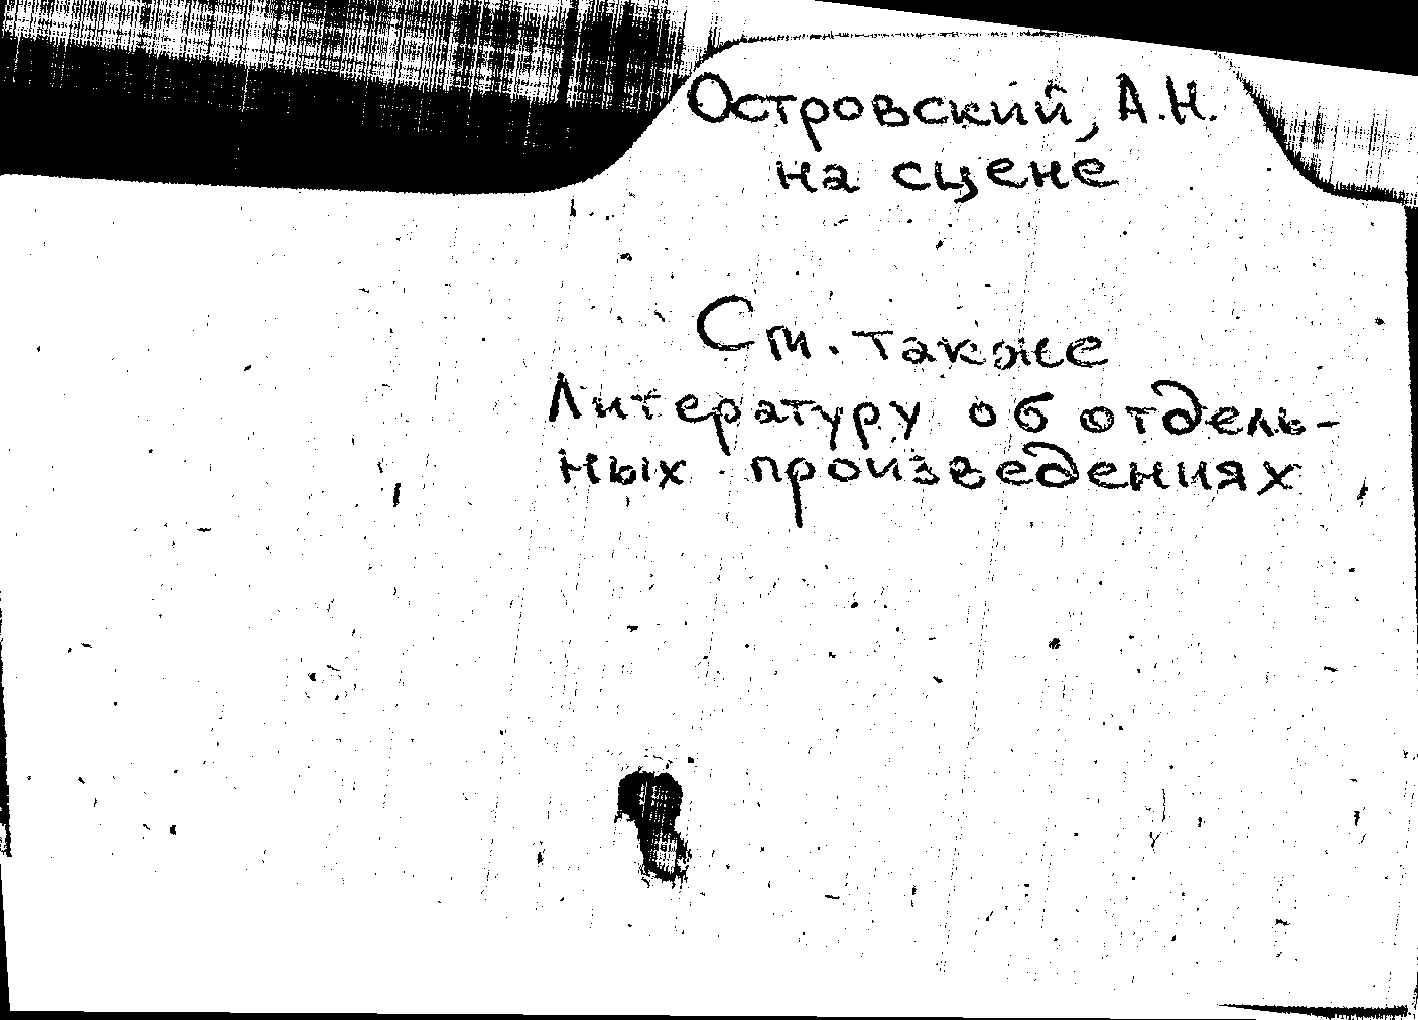 Островский, А.Н.
на сцене
См. также
Литературу об отдель-
ных произведениях